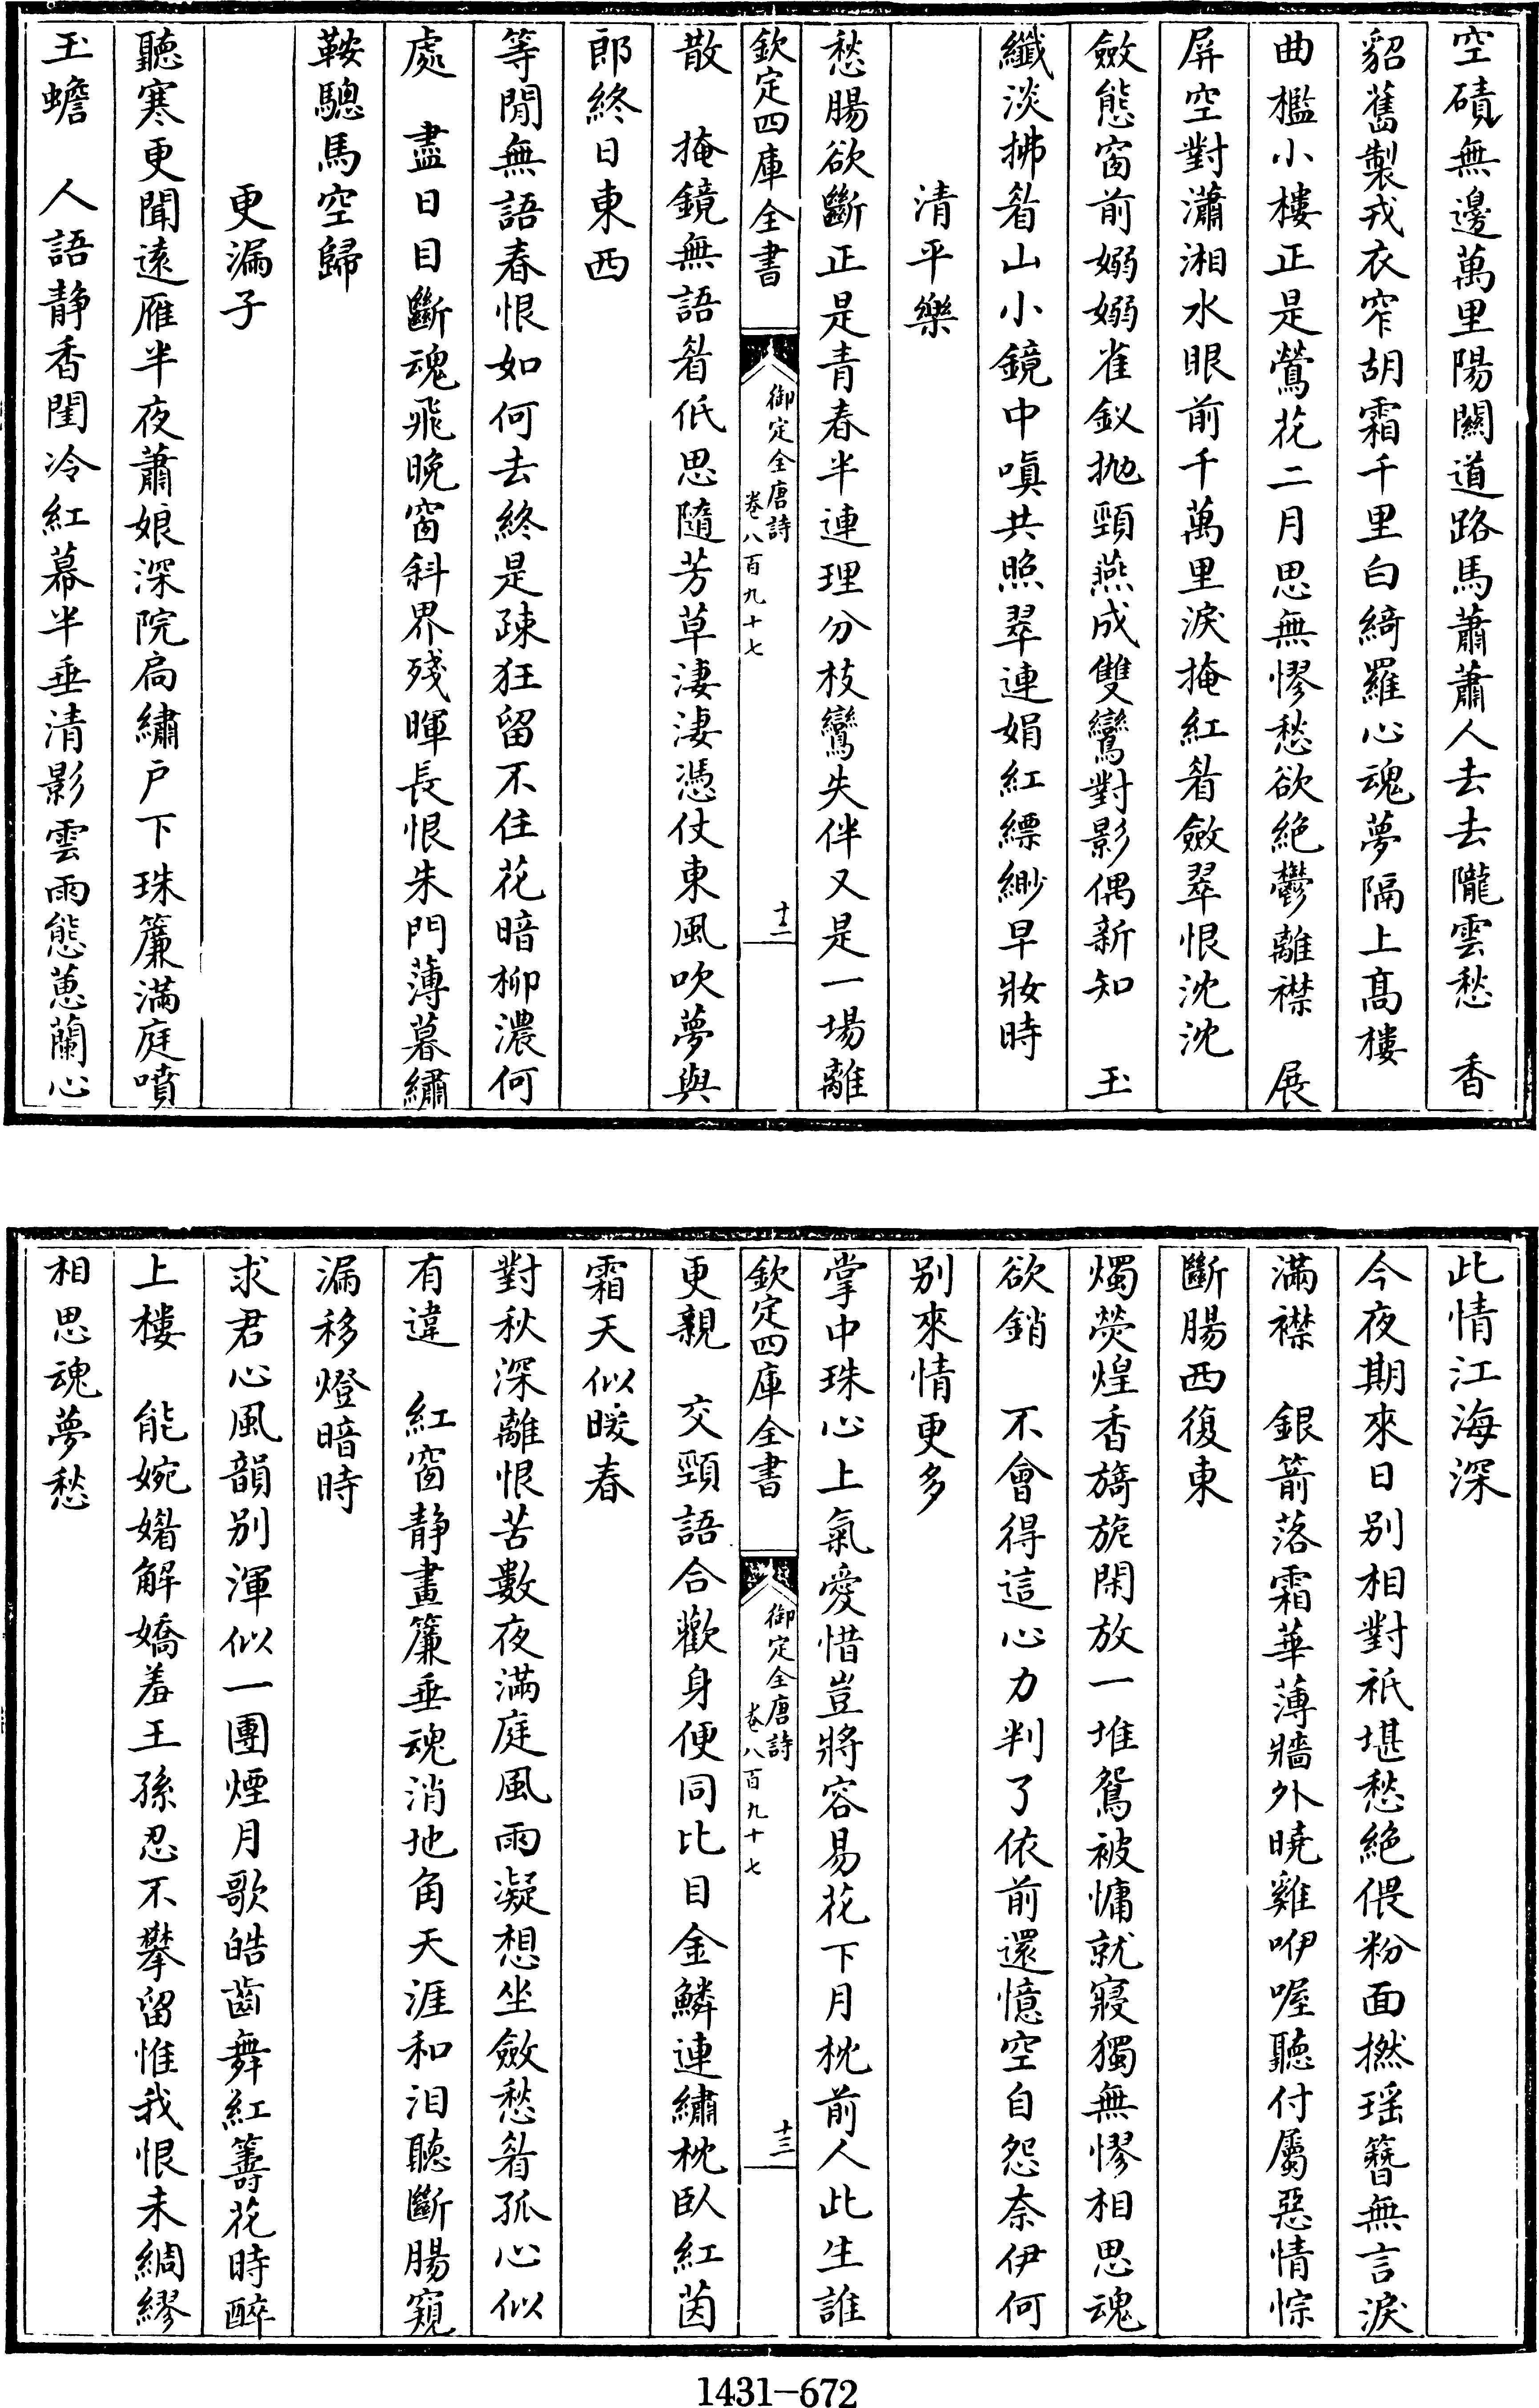 空磧無邊萬里陽關道路馬蕭蕭人去去隴雲愁　香
貂舊製戎衣窄胡霜千里白綺羅心魂夢隔上髙樓
曲檻小樓正是鶯花二月思無憀愁欲絶鬱離襟　展
屏空對瀟湘水眼前千萬里淚掩紅眉斂翠恨沈沈
斂態窗前嫋嫋雀釵抛頸燕成雙鸞對影偶新知　玉
纖淡拂眉山小鏡中嗔共照翠連娟紅縹緲早妝時
清平樂
愁腸欲斷正是青春半連理分枝鸞失伴又是一場離
欽定四庫全書
御定全唐詩
卷八百九十七
十二
散　掩鏡無語眉低思隨芳草淒淒憑仗東風吹夢與
郎終日東西
等閒無語春恨如何去終是疎狂留不住花暗柳濃何
處　盡日目斷魂飛晚窗斜界殘暉長恨朱門薄暮繡
鞍驄馬空歸
更漏子
聽寒更聞遠雁半夜蕭娘深院扃繡戶下珠簾滿庭噴
玉蟾　人語靜香閨冷紅幕半垂清影雲雨態蕙蘭心
此情江海深
今夜期來日别相對祇堪愁絶偎粉面撚瑶簪無言淚
滿襟　銀箭落霜華薄牆外曉雞咿喔聽付屬惡情悰
斷腸西復東
燭熒煌香旖旎閑放一堆鴛被慵就寢獨無憀相思魂
欲銷　不會得這心力判了依前還憶空自怨奈伊何
别來情更多
掌中珠心上氣愛惜豈將容易花下月枕前人此生誰
欽定四庫全書
御定全唐詩
卷八百九十七
十三
更親　交頸語合歡身便同比目金鱗連繡枕卧紅茵
霜天似暖春
對秋深離恨苦數夜滿庭風雨凝想坐斂愁眉孤心似
有違　紅窗靜畫簾垂魂消地角天涯和泪聽斷腸窺
漏移燈暗時
求君心風韻别渾似一團煙月歌皓齒舞紅籌花時醉
上樓　能婉媚解嬌羞王孫忍不攀留惟我恨未綢繆
相思魂夢愁
1431-672